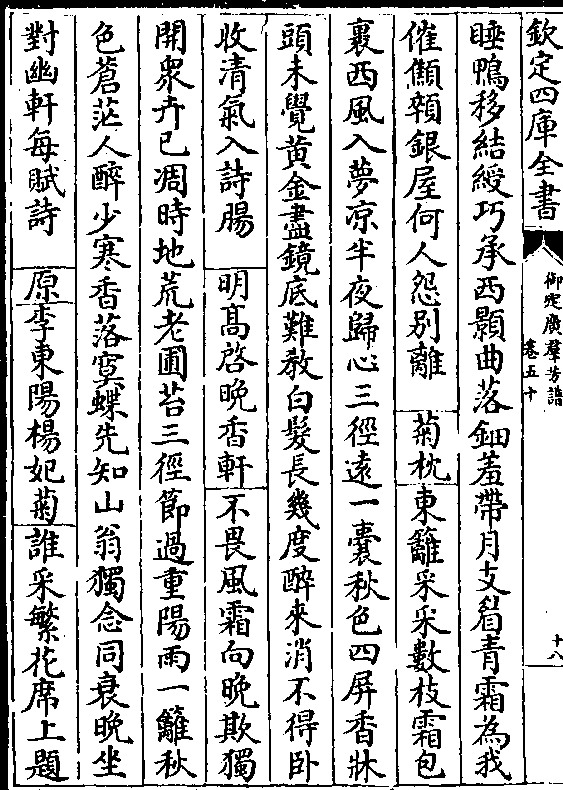 欽定四庫全書
御定廣羣芳譜
卷五十
十八
睡鴨移結綬巧承西顥曲落鈿羞帶月支眉青霜為我
催顏頩銀屋何人怨别離 菊枕東籬采采數枝霜包
裹西風入夢凉半夜歸心三徑遠一囊秋色四屏香牀
頭未覺黄金盡鏡底難教白髪長幾度醉來消不得卧
收清氣入詩腸 明髙啓晚香軒不畏風霜向晚欺獨
開衆卉已凋時地荒老圃苔三徑節過重陽雨一籬秋
色蒼茫人醉少寒香落寞蝶先知山翁獨念同衰晚坐
對幽軒每賦詩 原李東陽楊妃菊誰采繁花席上題